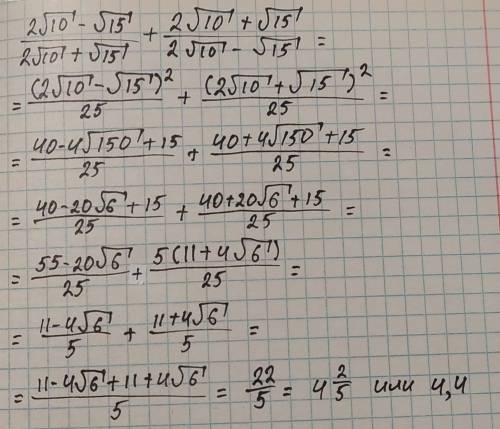 (2√10 - √15)/(2√10 + √15) + (2√10 + √15)/(2√10 - √15) =
= (2√10 - √15)²/25 + (2√10 + √15)²/25 =
= (40 - 4√150 + 15)/25 + (40 + 4√150 + 15)/25 =
= (40 - 20√6 + 15)/25 + (40 + 20√6 + 15)/25 =
= (55 - 20√6)/25 + 5(11 + 4√6)/25 =
= (11 - 4√6)/5 + (11 + 4√6)/5 =
= (11 - 4√6 + 11 + 4√6)/5 = 22/5 = 4 2/5 или 4,4